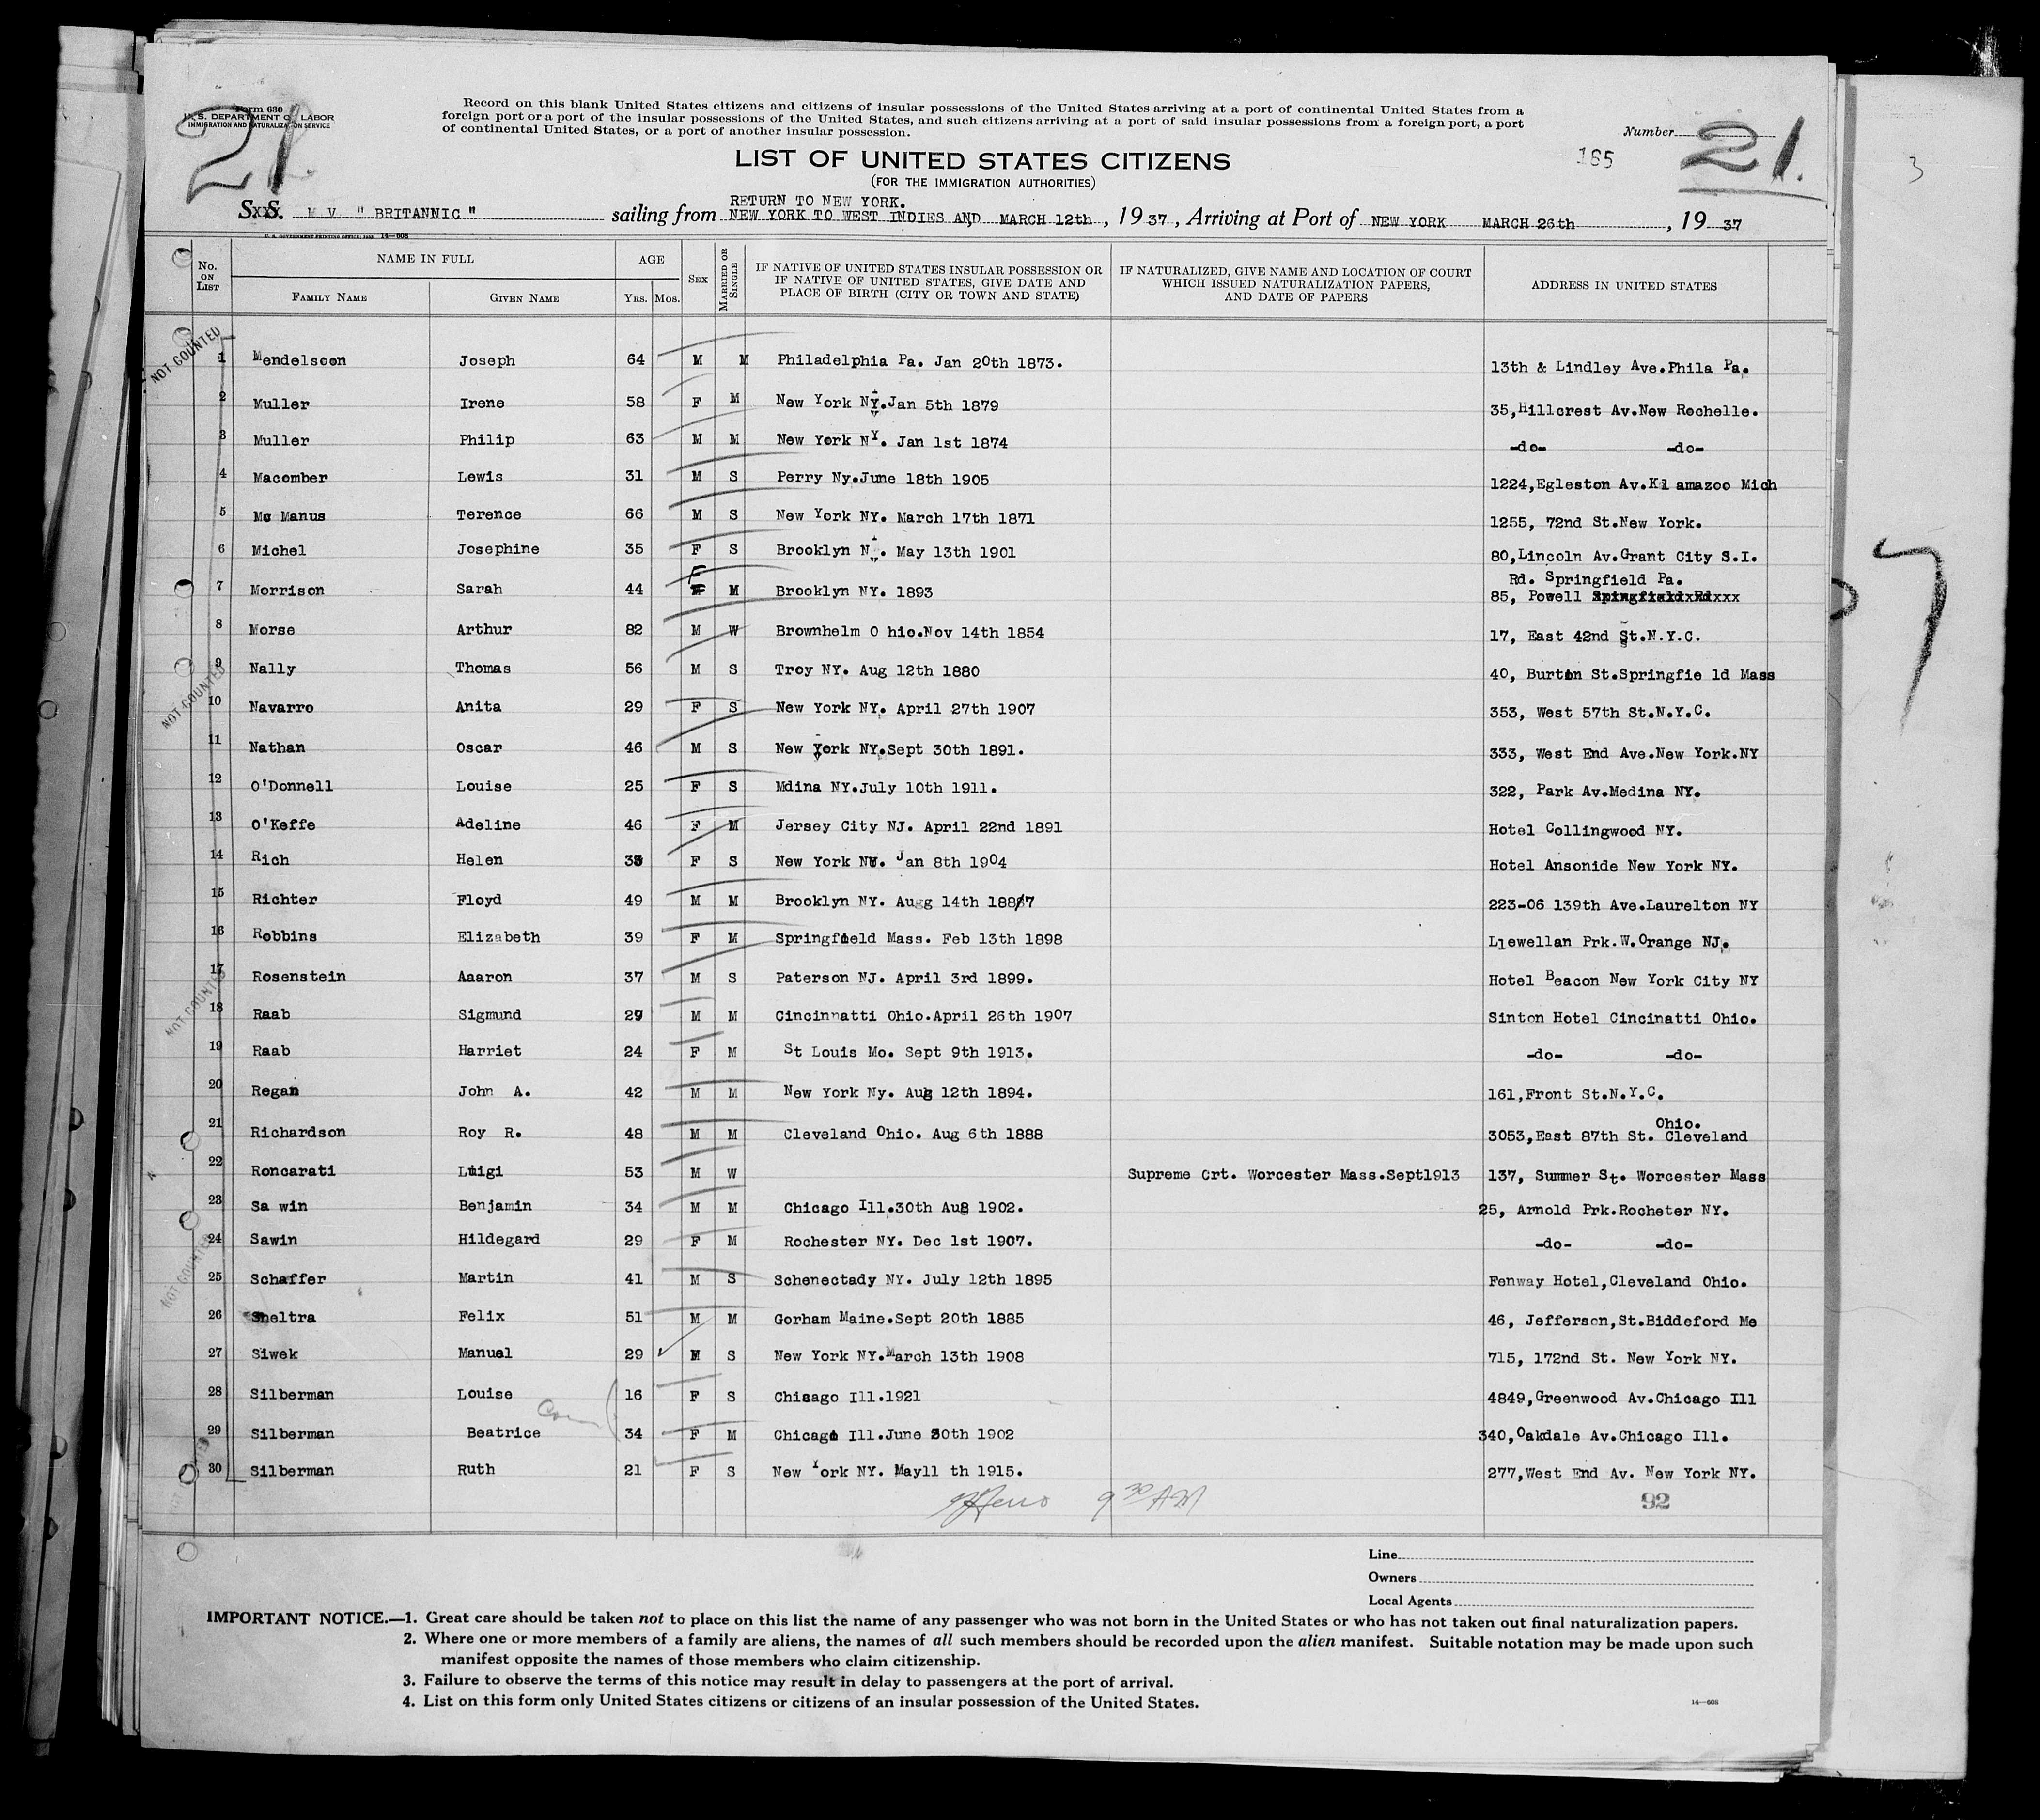 Form 630
U. S. DEPARTMENT OF LABOR
IMMIGRATION AND NATURALIZATION SERVICE
21
Record on this blank United States citizens and citizens of insular possessions of the United States arriving at a port of continental United States from a
foreign port or a port of the insular possessions of the United States, and such citizens arriving at a port of said insular possessions from a foreign port, a port
of continental United States, or a port of another insular possession.
Number
LIST OF UNITED STATES CITIZENS
165
21.
(FOR THE IMMIGRATION AUTHORITIES)
RETURN TO NEW YORK.
S.S. M V " BRITANNIC " sailing from NEW YORK TO WEST INDIES AND, MARCH 12th, 1937, Arriving at Port of NEW YORK MARCH 26th, 1937
U. S. GOVERNMENT PRINTING OFFICE 14—608
No. ON LIST NAME IN FULL FAMILY NAME GIVEN NAME AGE YRS. MOS. SEX MARRIED OR SINGLE IF NATIVE OF UNITED STATES INSULAR POSSESSION OR IF NATIVE OF UNITED STATES, GIVE DATE AND PLACE OF BIRTH (CITY OR TOWN AND STATE) IF NATURALIZED, GIVE NAME AND LOCATION OF COURT WHICH ISSUED NATURALIZATION PAPERS, AND DATE OF PAPERS ADDRESS IN UNITED STATES
NOT COUNTED
1 Mendelsoon Joseph 64 M M Philadelphia Pa. Jan 20th 1873. 13th & Lindley Ave.Phila Pa.
2 Muller Irene 58 F M New York NY.Jan 5th 1879 35,Hillcrest Av.New Rochelle.
3 Muller Philip 63 M M New York NY. Jan 1st 1874 -do- -do-
4 Macomber Lewis 31 M S Perry Ny.June 18th 1905 1224,Egleston Av.Kl amazoo Mich
5 Mc Manus Terence 66 M S New York NY. March 17th 1871 1255, 72nd St.New York.
6 Michel Josephine 35 F S Brooklyn N . May 13th 1901 80,Lincoln Av.Grant City S.I.
7 Morrison Sarah 44 F M Brooklyn NY. 1893 85, Powell Rd. Springfield Pa.
8 Morse Arthur 82 M W Brownhelm O hio.Nov 14th 1854 17, East 42nd St.N.Y.C.
9 Nally Thomas 56 M S Troy NY. Aug 12th 1880 40, Burton St.Springfie ld Mass
NOT COUNTED
10 Navarro Anita 29 F S New York NY. April 27th 1907 353, West 57th St.N.Y.C.
11 Nathan Oscar 46 M S New York NY.Sept 30th 1891. 333, West End Ave.New York.NY
12 O'Donnell Louise 25 F S Mdina NY.July 10th 1911. 322, Park Av.Medina NY.
13 O'Keffe Adeline 46 F M Jersey City NJ. April 22nd 1891 Hotel Collingwood NY.
14 Rich Helen F S New York NY. Jan 8th 1904 Hotel Ansonide New York NY.
15 Richter Floyd 49 M M Brooklyn NY. Augg 14th 1887 223-06 139th Ave.Laurelton NY
16 Robbins Elizabeth 39 F M Springfield Mass. Feb 13th 1898 Llewellan Prk.W.Orange NJ.
17 Rosenstein Aaaron 37 M S Paterson NJ. April 3rd 1899. Hotel Beacon New York City NY
NOT COUNTED
18 Raab Sigmund 29 M M Cincinnatti Ohio.April 26th 1907 Sinton Hotel Cincinatti Ohio.
19 Raab Harriet 24 F M St Louis Mo. Sept 9th 1913. -do- -do-
20 Regan John A. 42 M M New York Ny. Aug 12th 1894. 161,Front St.N.Y.C.
21 Richardson Roy R. 48 M M Cleveland Ohio. Aug 6th 1888 3053,East 87th St. Cleveland Ohio.
22 Roncarati Luigi 53 M W Supreme Crt. Worcester Mass.Sept1913 137, Summer St. Worcester Mass
23 Sa win Benjamin 34 M M Chicago Ill.30th Aug 1902. 25, Arnold Prk.Rocheter NY.
24 Sawin Hildegard 29 F M Rochester NY. Dec 1st 1907. -do- -do-
NOT COUNTED
25 Schaffer Martin 41 M S Schenectady NY. July 12th 1895 Fenway Hotel,Cleveland Ohio.
26 Sheltra Felix 51 M M Gorham Maine.Sept 20th 1885 46, Jefferson,St.Biddeford Me
27 Siwek Manuel 29 M S New York NY.March 13th 1908 715, 172nd St. New York NY.
28 Silberman Louise 16 F S Chicago Ill.1921 4849,Greenwood Av.Chicago Ill
29 Silberman Beatrice 34 F M Chicago Ill.June 30th 1902 340,Oakdale Av.Chicago Ill.
30 Silberman Ruth 21 F S New York NY. May11 th 1915. 277,West End Av. New York NY.
9 30 AM
92
Line
Owners
Local Agents
IMPORTANT NOTICE.—1. Great care should be taken not to place on this list the name of any passenger who was not born in the United States or who has not taken out final naturalization papers.
2. Where one or more members of a family are aliens, the names of all such members should be recorded upon the alien manifest. Suitable notation may be made upon such
manifest opposite the names of those members who claim citizenship.
3. Failure to observe the terms of this notice may result in delay to passengers at the port of arrival.
4. List on this form only United States citizens or citizens of an insular possession of the United States.
14—608
3